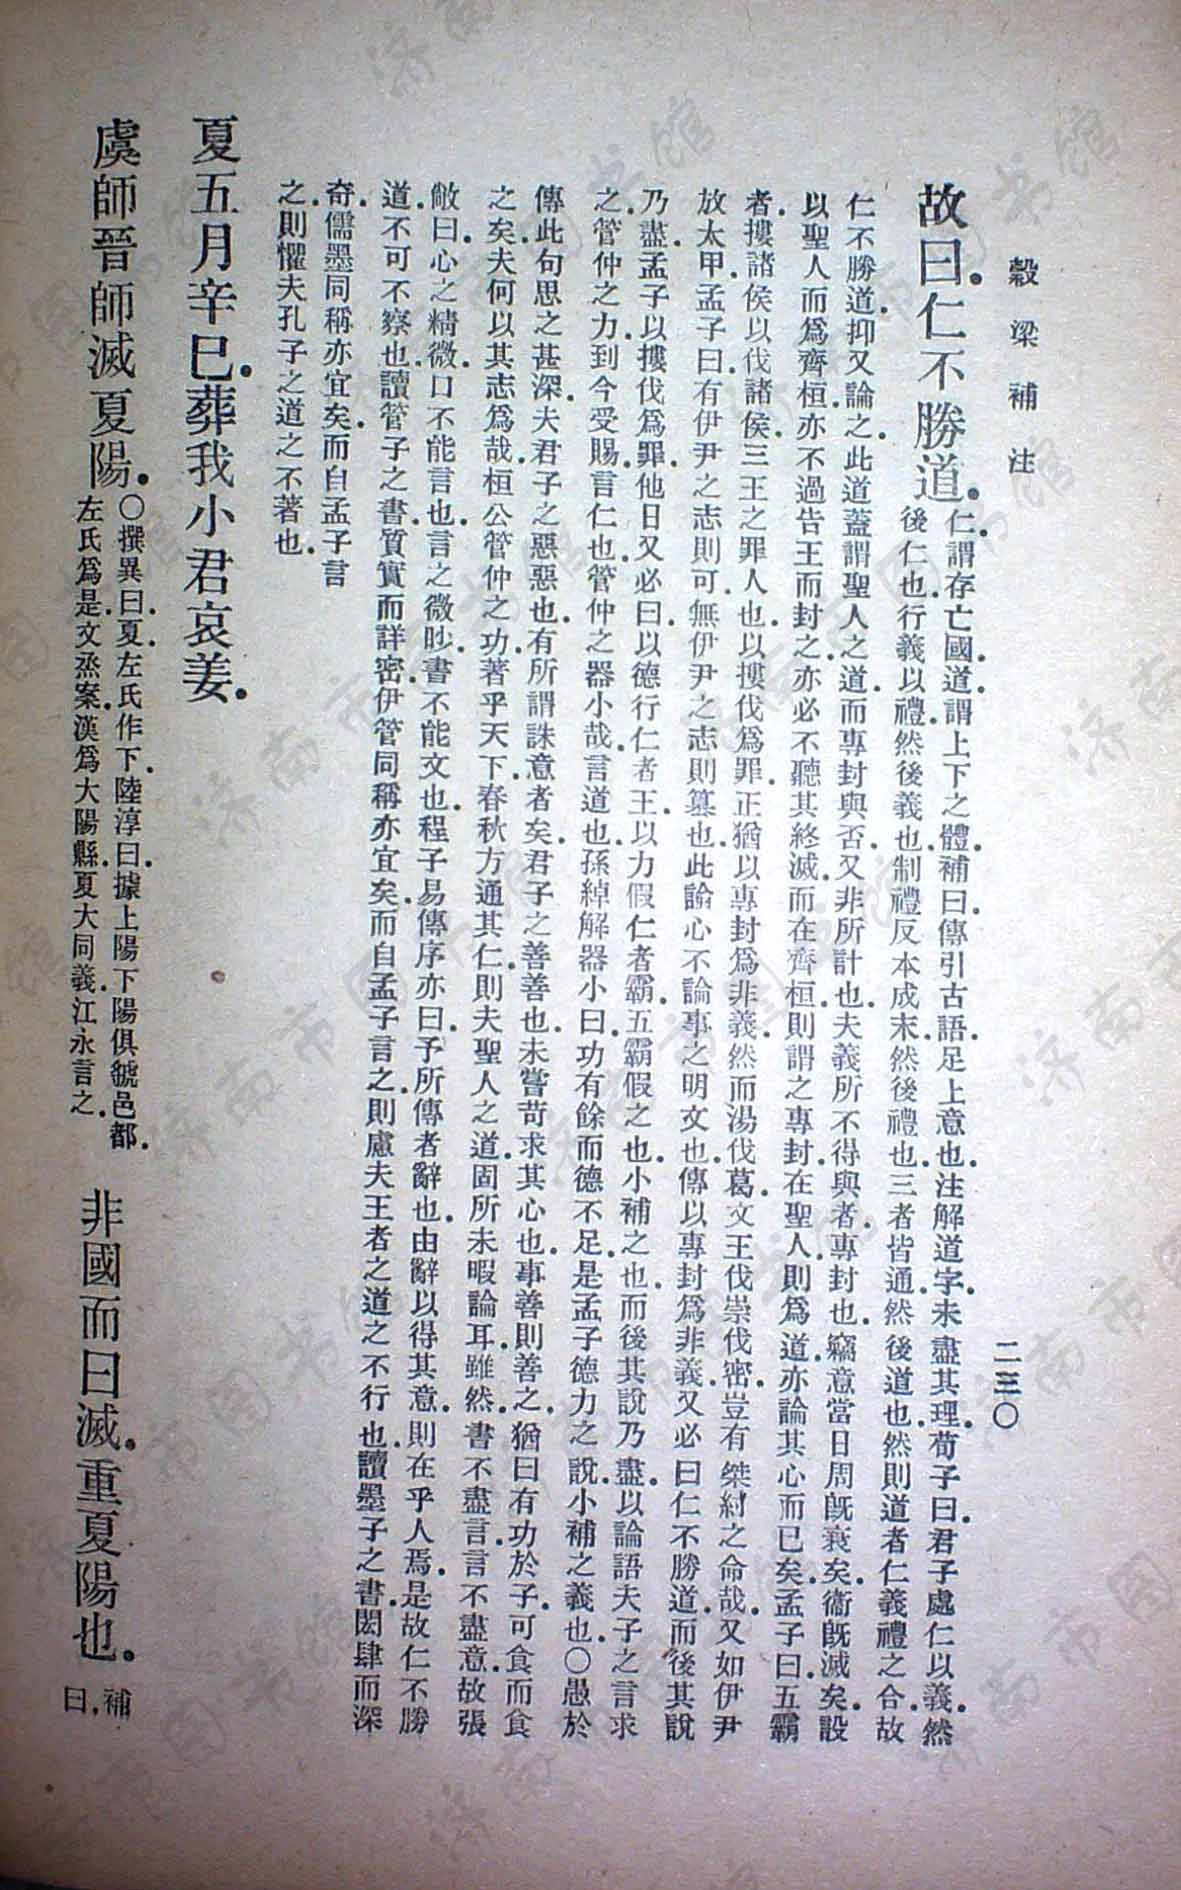 穀梁補注
二三〇
故曰。仁不勝道。
仁。謂存亡國。道。謂上下之體。補曰。傳引古語。足上意也。注解道字未盡其理。荀子曰。君子處仁以義。然
後仁也。行義以禮。然後義也。制禮反本成末。然後禮也。三者皆通。然後道也。然則道者仁義禮之合。故
仁不勝道。抑又論之。此道蓋謂聖人之道。而專封與否。又非所計也。夫義所不得與者。專封也。竊意當日周旣衰矣。衞旣滅矣。設
以聖人而爲齊桓。亦不過告王而封之。亦必不聽其終滅。而在齊桓。則謂之專封。在聖人。則爲道。亦論其心而已矣。孟子曰。五霸
者。摟諸侯以伐諸侯。三王之罪人也。以摟伐爲罪。正猶以專封爲非義。然而湯伐葛。文王伐崇伐密。豈有桀紂之命哉。又如伊尹
放太甲。孟子曰。有伊尹之志則可。無伊尹之志則篡也。此論心不論事之明文也。傳以專封爲非義。又必曰仁不勝道。而後其說
乃盡。孟子以摟伐爲罪。他日又必曰。以德行仁者王。以力假仁者霸。五霸假之也。小補之也。而後其說乃盡。以論語夫子之言求
之。管仲之力。到今受賜。言仁也。管仲之器小哉。言道也。孫綽解器小曰。功有餘而德不足。是孟子德力之說。小補之義也。〇愚於
傳此句思之甚深。夫君子之惡惡也。有所謂誅意者矣。君子之善善也。未嘗苛求其心也。事善則善之。猶曰有功於子。可食而食
之矣。夫何以其志爲哉。桓公管仲之功。著乎天下。春秋方通其仁。則夫聖人之道。固所未暇論耳。雖然。書不盡言。言不盡意。故張
敞曰。心之精微。口不能言也。言之微眇。書不能文也。程子易傳序亦曰。予所傳者辭也。由辭以得其意。則在乎人焉。是故仁不勝
道。不可不察也。讀管子之書。質實而詳密。伊管同稱亦宜矣。而自孟子言之。則慮夫王者之道之不行也。讀墨子之書。閎肆而深
奇。儒墨同稱亦宜矣。而自孟子言
之。則懼夫孔子之道之不著也。
夏五月辛巳。葬我小君哀姜。
虞師晉師滅夏陽。
〇撰異曰。夏。左氏作下。陸淳曰。據上陽下陽俱虢邑都。
左氏爲是。文烝案。漢爲大陽縣。夏大同義。江永言之。
非國而曰滅。重夏陽也。
補
曰。